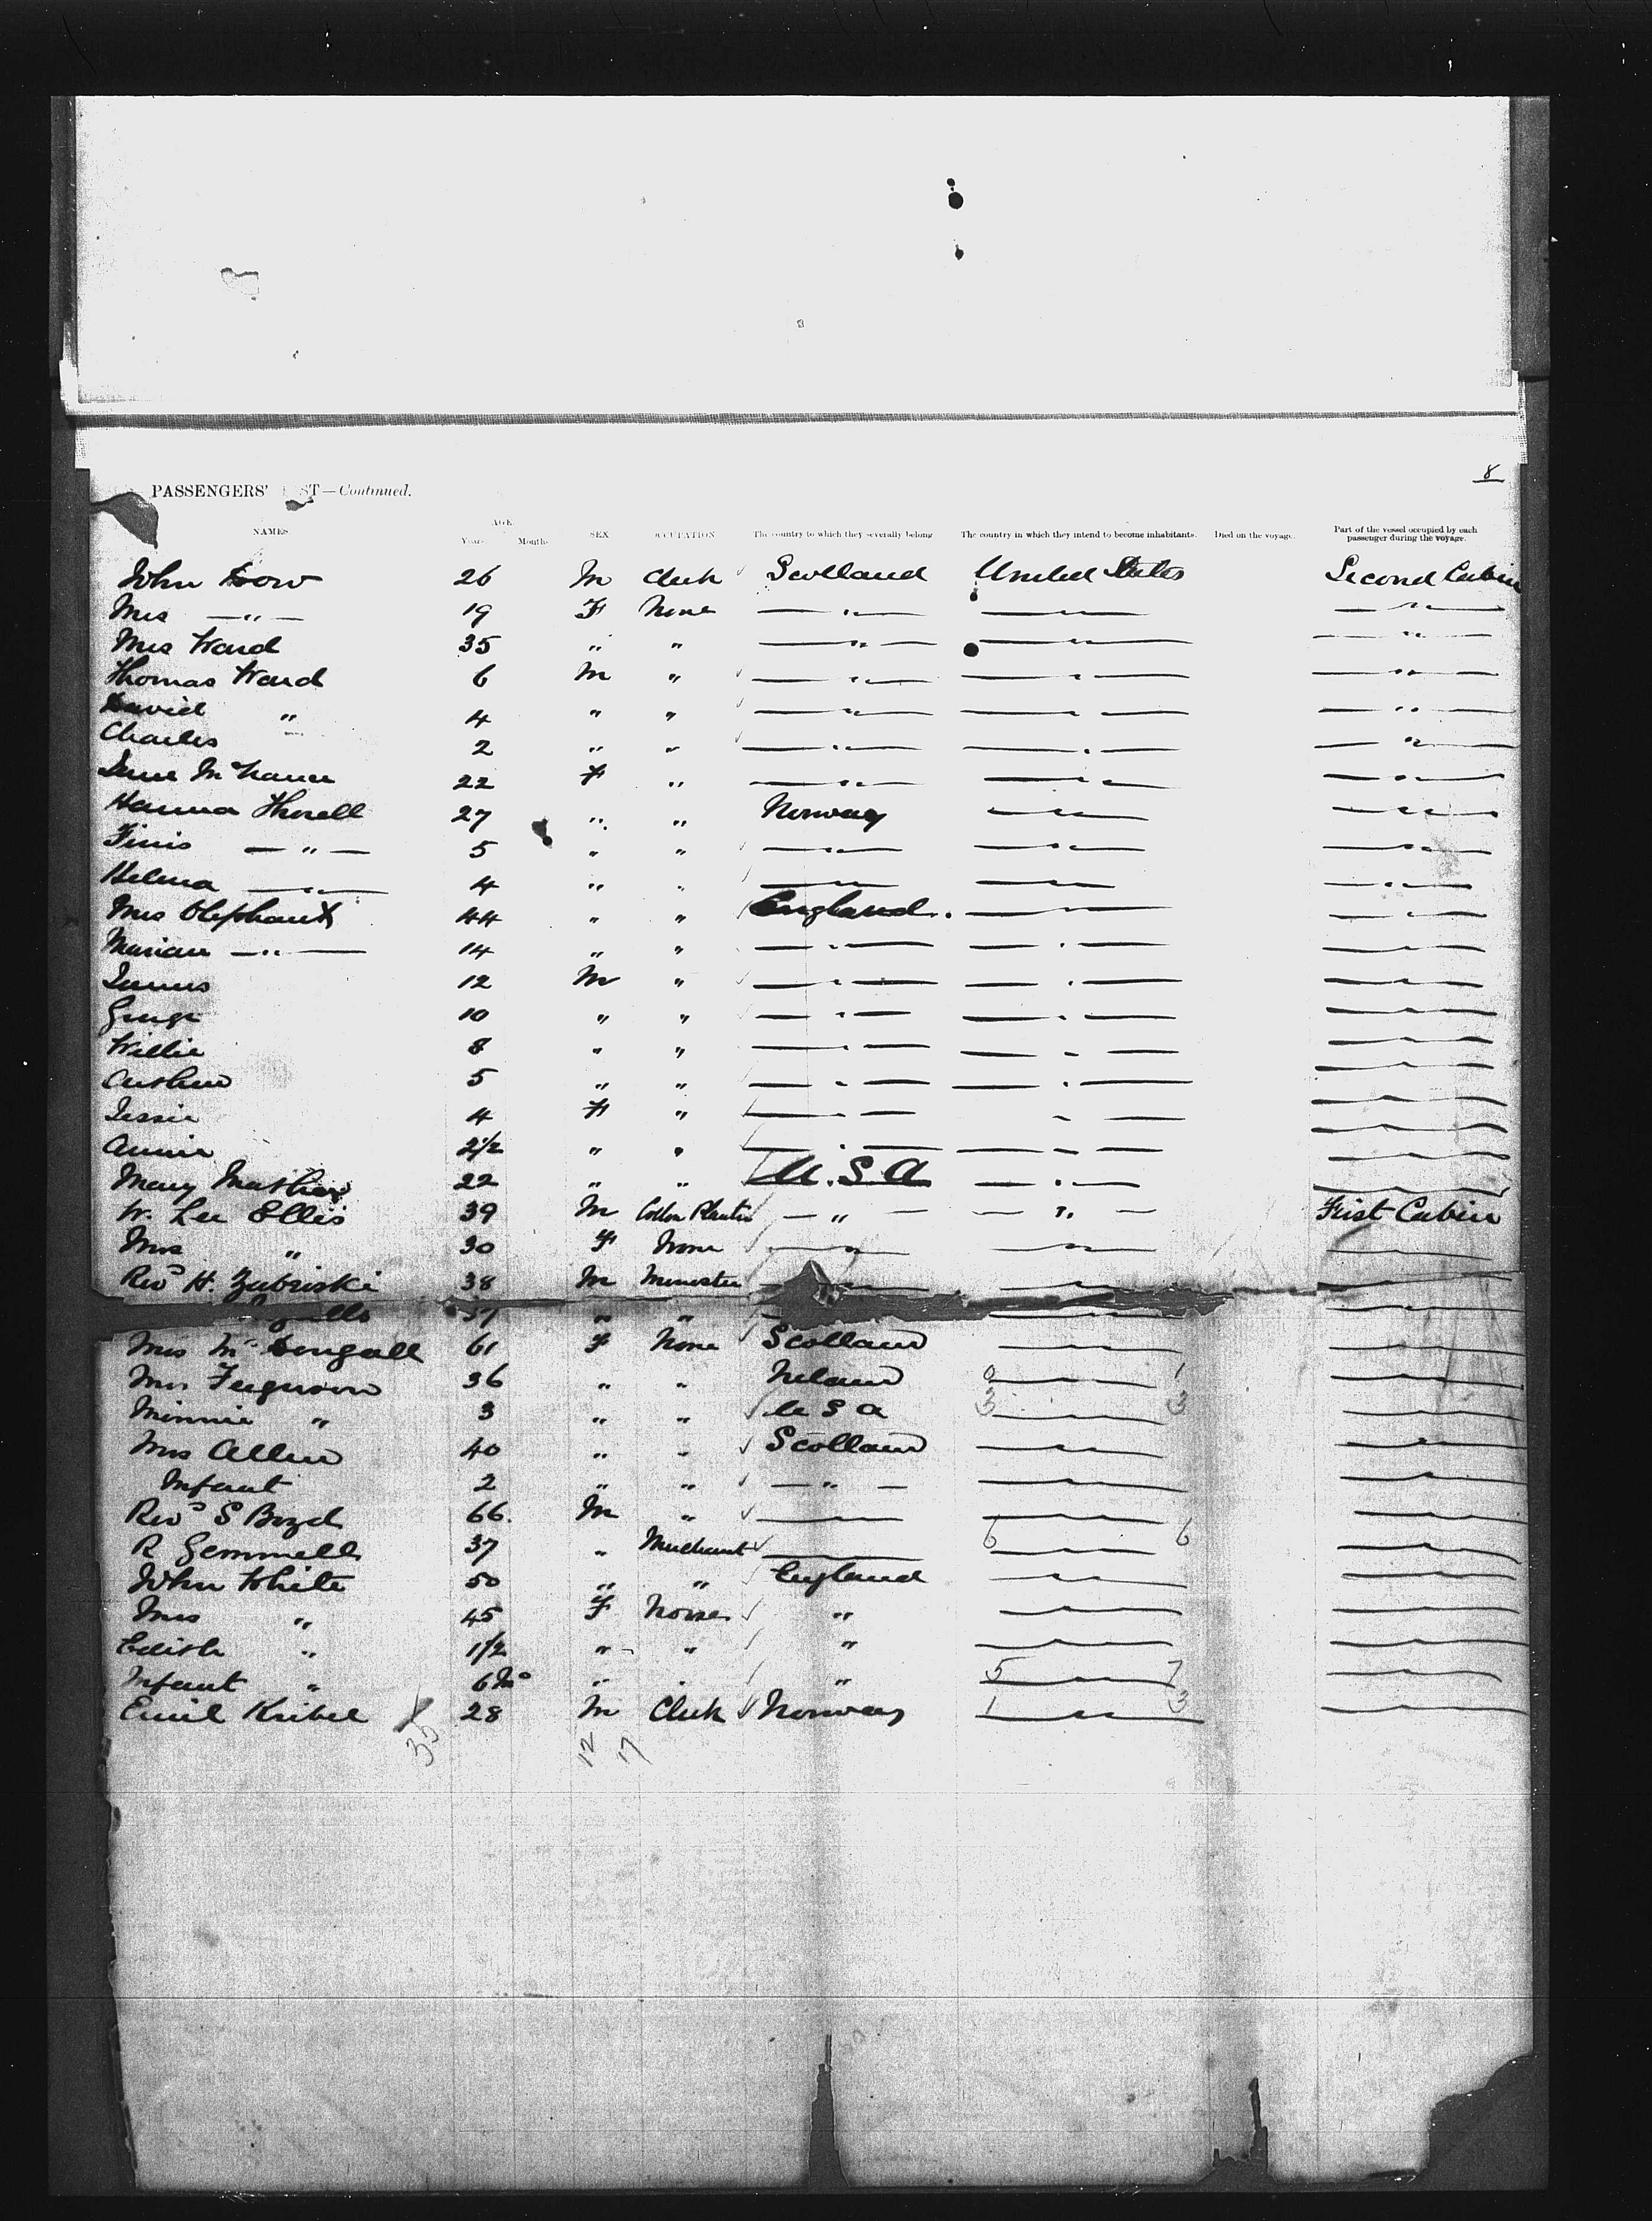 8
PASSENGERS' ST—Continued.
NAMES AGE Years Months SEX OCCUPATION The country to which they severally belong The country in which they intend to become inhabitants. Died on the voyage. Part of the vessel occupied by each passenger during the voyage.
John Dow 26 M Clerk Scotland United States Second Cabin
Mrs —"— 19 F None —"— —"— —"—
Mrs Ward 35 " " —"— —"— —"—
Thomas Ward 6 M " —"— —"— —"—
David " 4 " " —"— —"— —"—
Charles " 2 " " —"— —"— —"—
22 F " —"— —"— —"—
Hanna Thorell 27 " " Norway —"— —"—
—"— 5 " " —"— —"— —"—
Helma —"— 4 " " —"— —"— —"—
Mrs Olephant 44 " " England. —"— —"—
Marian —"— 14 " " —"— —"— —"—
James 12 M " —"— —"— —"—
George 10 " " —"— —"— —"—
Willie 8 " " —"— —"— —"—
Arthur 5 " " —"— —"— —"—
Jessie 4 F " —"— —"— —"—
Annie 2½ " " —"— —"— —"—
Mary Mather 22 " " U.S.A —"— —"—
W. Lee Ellis 39 M Cotton Planter —"— —"— First Cabin
Mrs " 30 F None —"— —"— —"—
Revd H. Zabriski 38 M Minister —"— —"— —"—
37 " " —"— —"—
Mrs McDougall 61 F None Scotland —"— —"—
Mrs Ferguson 36 " " Ireland —"— —"—
Minnie " 3 " " U S A 3 —"— 3 —"—
Mrs Allen 40 " " Scotland —"— —"—
Infant 2 " " —"— —"— —"—
Revd S Boyd 66. M " —"— —"— —"—
R Gemmell 37 " Merchant —"— 6 —"— 6 —"—
John White 50 " " England —"— —"—
Mrs " 45 F None " —"— —"—
Edith " 1½ " " " —"— —"—
Infant " 6 Mo " " " 5 —"— 7 —"—
Emil Kribel 28 M Clerk Norway 1 —"— 3 —"—
35 12 17